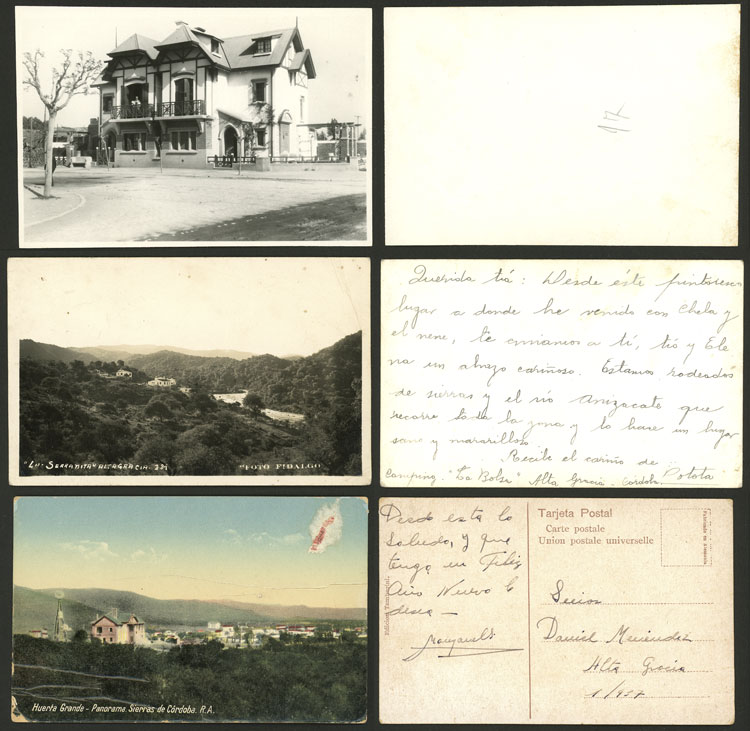 17
Querida tiá: Desde éste pintoresco
lugar a donde he venido con Chela y
el nene, te enviamos a tí, tió y Ele
na un abrazo cariñoso. Estamos rodeados
de sierras y el rió Anizacate que
recorre toda la zona y lo hace un lugar
sano y maravilloso
Recibe el cariño de
Potota
Camping "La Bolsa" Alta Gracia - Cordoba
SERRANITA" ALTAGRACIA. 331
"FOTO FIDALGO"
Huerta Grande - Panorama. Sierras de Córdoba. R.A.
Desde esta lo
saludo, y que
tenga un Feliz
Año Nuevo le
desea —
Edicion
Tarjeta Postal
Carte postale
Union postale universelle
Señor
Daniel Menendez
Alta Gracia
1/927